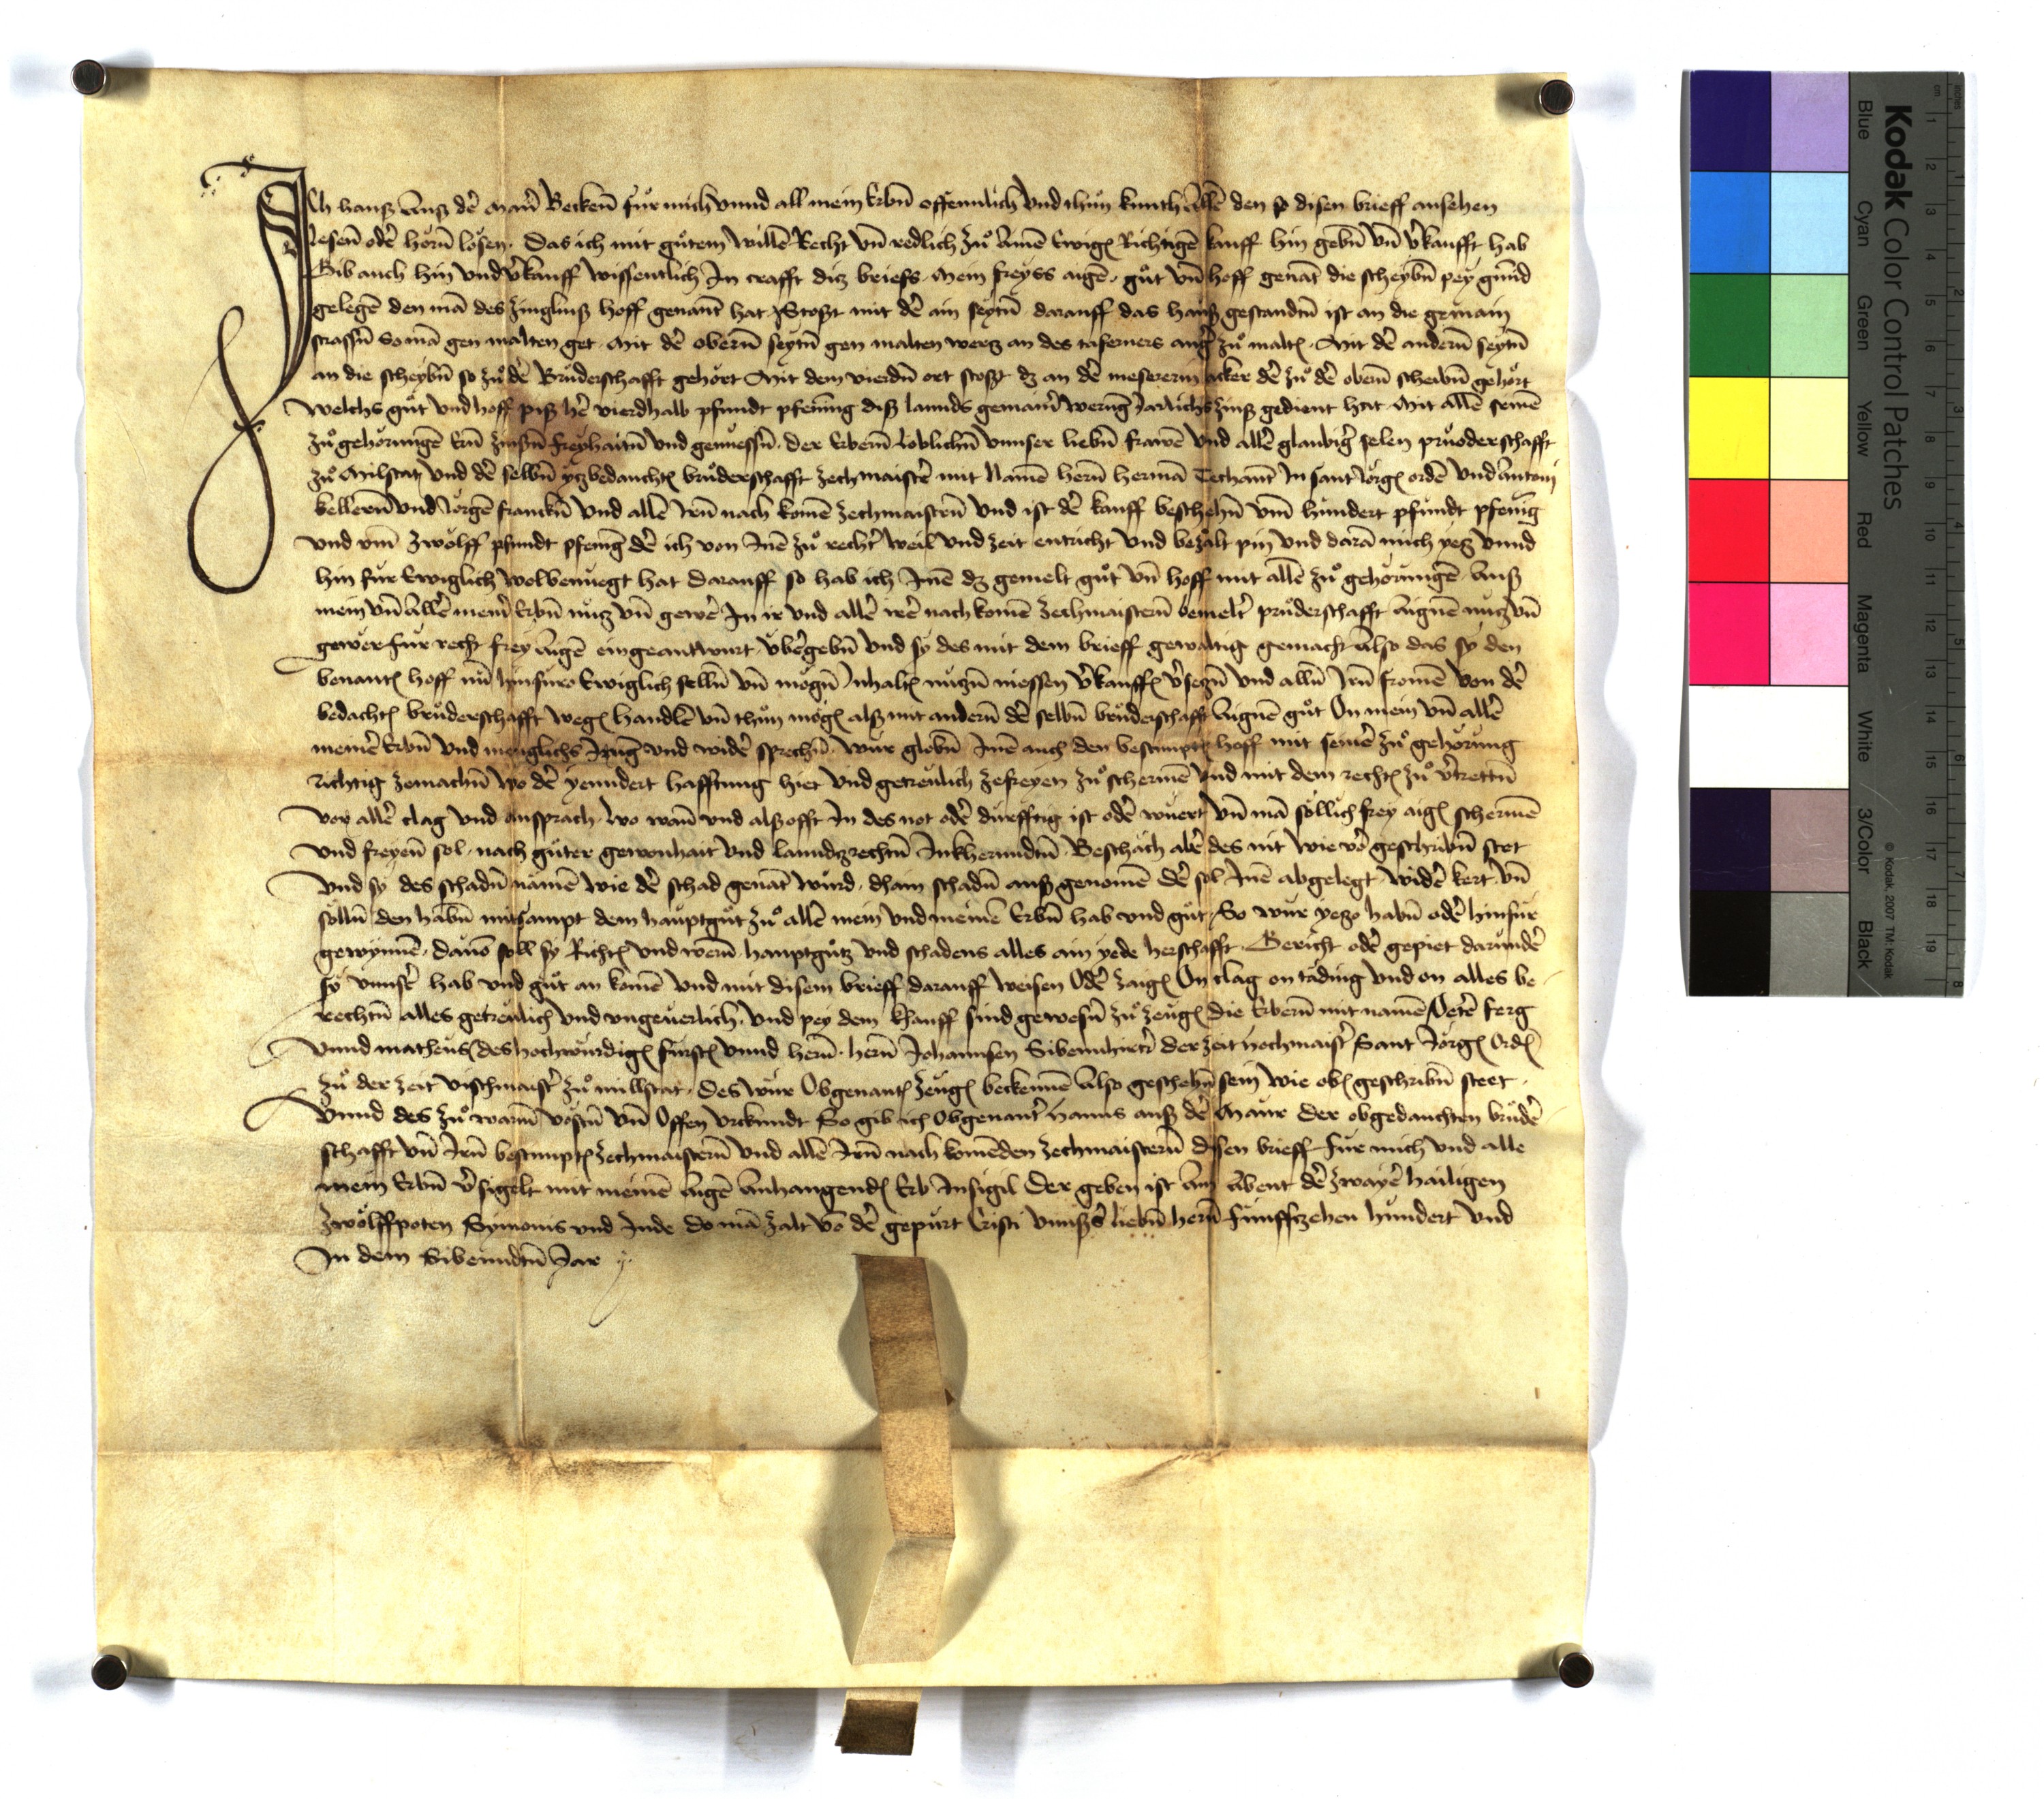 Ich hanß Auß der Maur Bekenn für mich vnnd all mein Erbn̄ offennlich vnd thůn kunth Allē den so disen brieff ansehen
lesen̄ oder hörn̄ lösen. Das ich mit gůtem willē Recht vn̄ redlich zů Ainē Ewigē Richtigē kauff hin gebn̄ vn̄ v̄kaufft hab
Gib auch hin vnd v̄kauff wissentlich In crafft diz briefs. Mein freyss aigē. gůt vn̄ hoff genāt die scheybn̄ pey gmūd
gelegē den mā des Zinglniß hoff genant hat Stoßt mit der ain seytn̄ darauff das hauß gestandtn̄ ist an die gemain
strassn̄ So mā gen malten get. Mit der obern̄ seytn̄ gen malten wertz an des taferners anger zů malt̄. Mit der andern̄ seytn̄
an die scheybn̄ so zů der Brůderschafft gehört Mit dem vierdn̄ ort stoßt dz an der meserin acker der zů der obern̄ scheibn̄ gehört
Welchs gůt vnd hoff piß her vierdhalb pfundt pfening diß lannds gemainer werung Järlichs zinß gedient hat Mit allē seinē
zů gehörungē Ern̄ zinsn̄ freyhaitn̄ vnd genuessn̄. Der Erbern̄ loblichn̄ vnnser liebn̄ frawē vnd aller glaubiger selen průderschafft
zů Milstat vnd der selbn̄ ytzbedanchtē brůderschafft zechmaister mit Namē hern̄ hermā Techant In sant Jörgē ordē vnd Antoni
kellern̄ vnd Jörgē franckn̄ vnd allē Irn̄ nach komē zechmaistern̄ vnd ist der kauff beschehn̄ vm̄ hundert pfundt pfenig
vnd vm̄ zwölff pfundt pfenig der ich von Inē zů rechter weil vnd zeit entricht vnd bezalt pin vnd darā mich yetz vnnd
hin für Ewiglich wolbenuegt hat darauff so hab ich Inē dz gemelt gůt vn̄ hoff mit allē zů gehörungē. Auß
mein vn̄ Aller meiner Erbn̄ nutz vn̄ gewer In ir vnd aller irer nach komē zechmaistern̄ bemelter průderschafft Aignē nutz vn̄
gewer für recht frey Aigē eingeantwurt. vbergebn̄ vnd sy des mit dem brieff gewaltig gemacht Also das sy den
benantē hoff nū hinfüro Ewiglich selln̄ vn̄ mögn̄ Inhabē nutzn̄ niessen v̄kauffē v̄setzn̄ vnd alln̄ Irn̄ fromē von der
bedachtē brůderschafft wegē handlē vn̄ thůn mögē alß mit andern̄ der selbn̄ brůderschafft Aignē gůt On mein vn̄ aller
meiner Erbn̄ vnd menglichs Irrūg vnd wider sprechn̄. Wür globn̄ Inē auch den bestimptē hoff mit seiner zů gehörung
richtig zemachn̄ wo der yenndert hafftung hiet vnd getreulich zefreyen zů schermē vnd mit dem rechtē zů v̄trettn̄
vor aller clag vnd ansprach. wo wann vnd alß offt In des not oder dürfftig ist oder wuert vn̄ mā söllich frey aigē schermē
vnd freyen̄ sol. nach gůter gewonhait vnd lanndßrechtn̄ In kherndtn̄ Beschäch aber des nit wie vor geschribn̄ stet
vnd sy des schadn̄ nämen wie der schad genāt wůrd. dhain schadn̄ auß genomē der sol Inē abgelegt. wider kert vn̄
sölln̄ den habn̄ mitsampt dem hauptgůt zů allē mein vnd meinē Erbn̄ hab vnd gůt. So wür yetzo habn̄ oder hinfür
gewynnē. dauō soll sy Richtē vnd wern̄. hauptgůtz vnd schadens alles ain yede herschafft. Gericht oder gepiet darunder
sy vnnser hab vnd gůt an komē vnd mit disem brieff darauff weisen Oder zaigē On clag on täding vnd on alles be-
rechtn̄ alles getreulich vnd vngeuerlich. vnd pey dem khauff sind gewesn̄ zů zeugē die Erbern̄ mit namē Peter ferg
vnnd matheus des hochwurdigē fürstē vnnd hern̄. hern̄ Johannsen Sibennhirter der zeit hochmaister Sant Jörgē Ordē
zů der zeit vischmaister zů millstat. des wür Obgenantē zeugē bekennē Also geschehn̄ sein wie obē geschribn̄ steet.
Vnnd des zů warm̄ vöstn̄ vn̄ Offen vrckundt So gib ich Obgenanter hanns auß der Maur der obgedanchten brůder
schafft vn̄ Irn̄ bestimptē zechmaistern̄ vnd allē Irn̄ nach komēden zechmaistern̄ disen brieff für mich vnd alle
mein Erbn̄ v̄sigelt mit meinē Aigē Anhangendē Erb Insigil Der geben ist Am Abent der zwayer hailigen
zwölffpoten Symonis vnd Jude do mā zalt vō der gepurt Cristi vnnßers liebn̄ hern̄ fünffzehen hundert vnd
In dem Sibenndtn̄ Jar
Kodak Color Control Patches
Blue Cyan Green Yellow Red Magenta White 3/Color Black
© Kodak, 2007 TM: Kodak
inches 1 2 3 4 5 6 7 8
cm 1 2 3 4 5 6 7 8 9 10 11 12 13 14 15 16 17 18 19